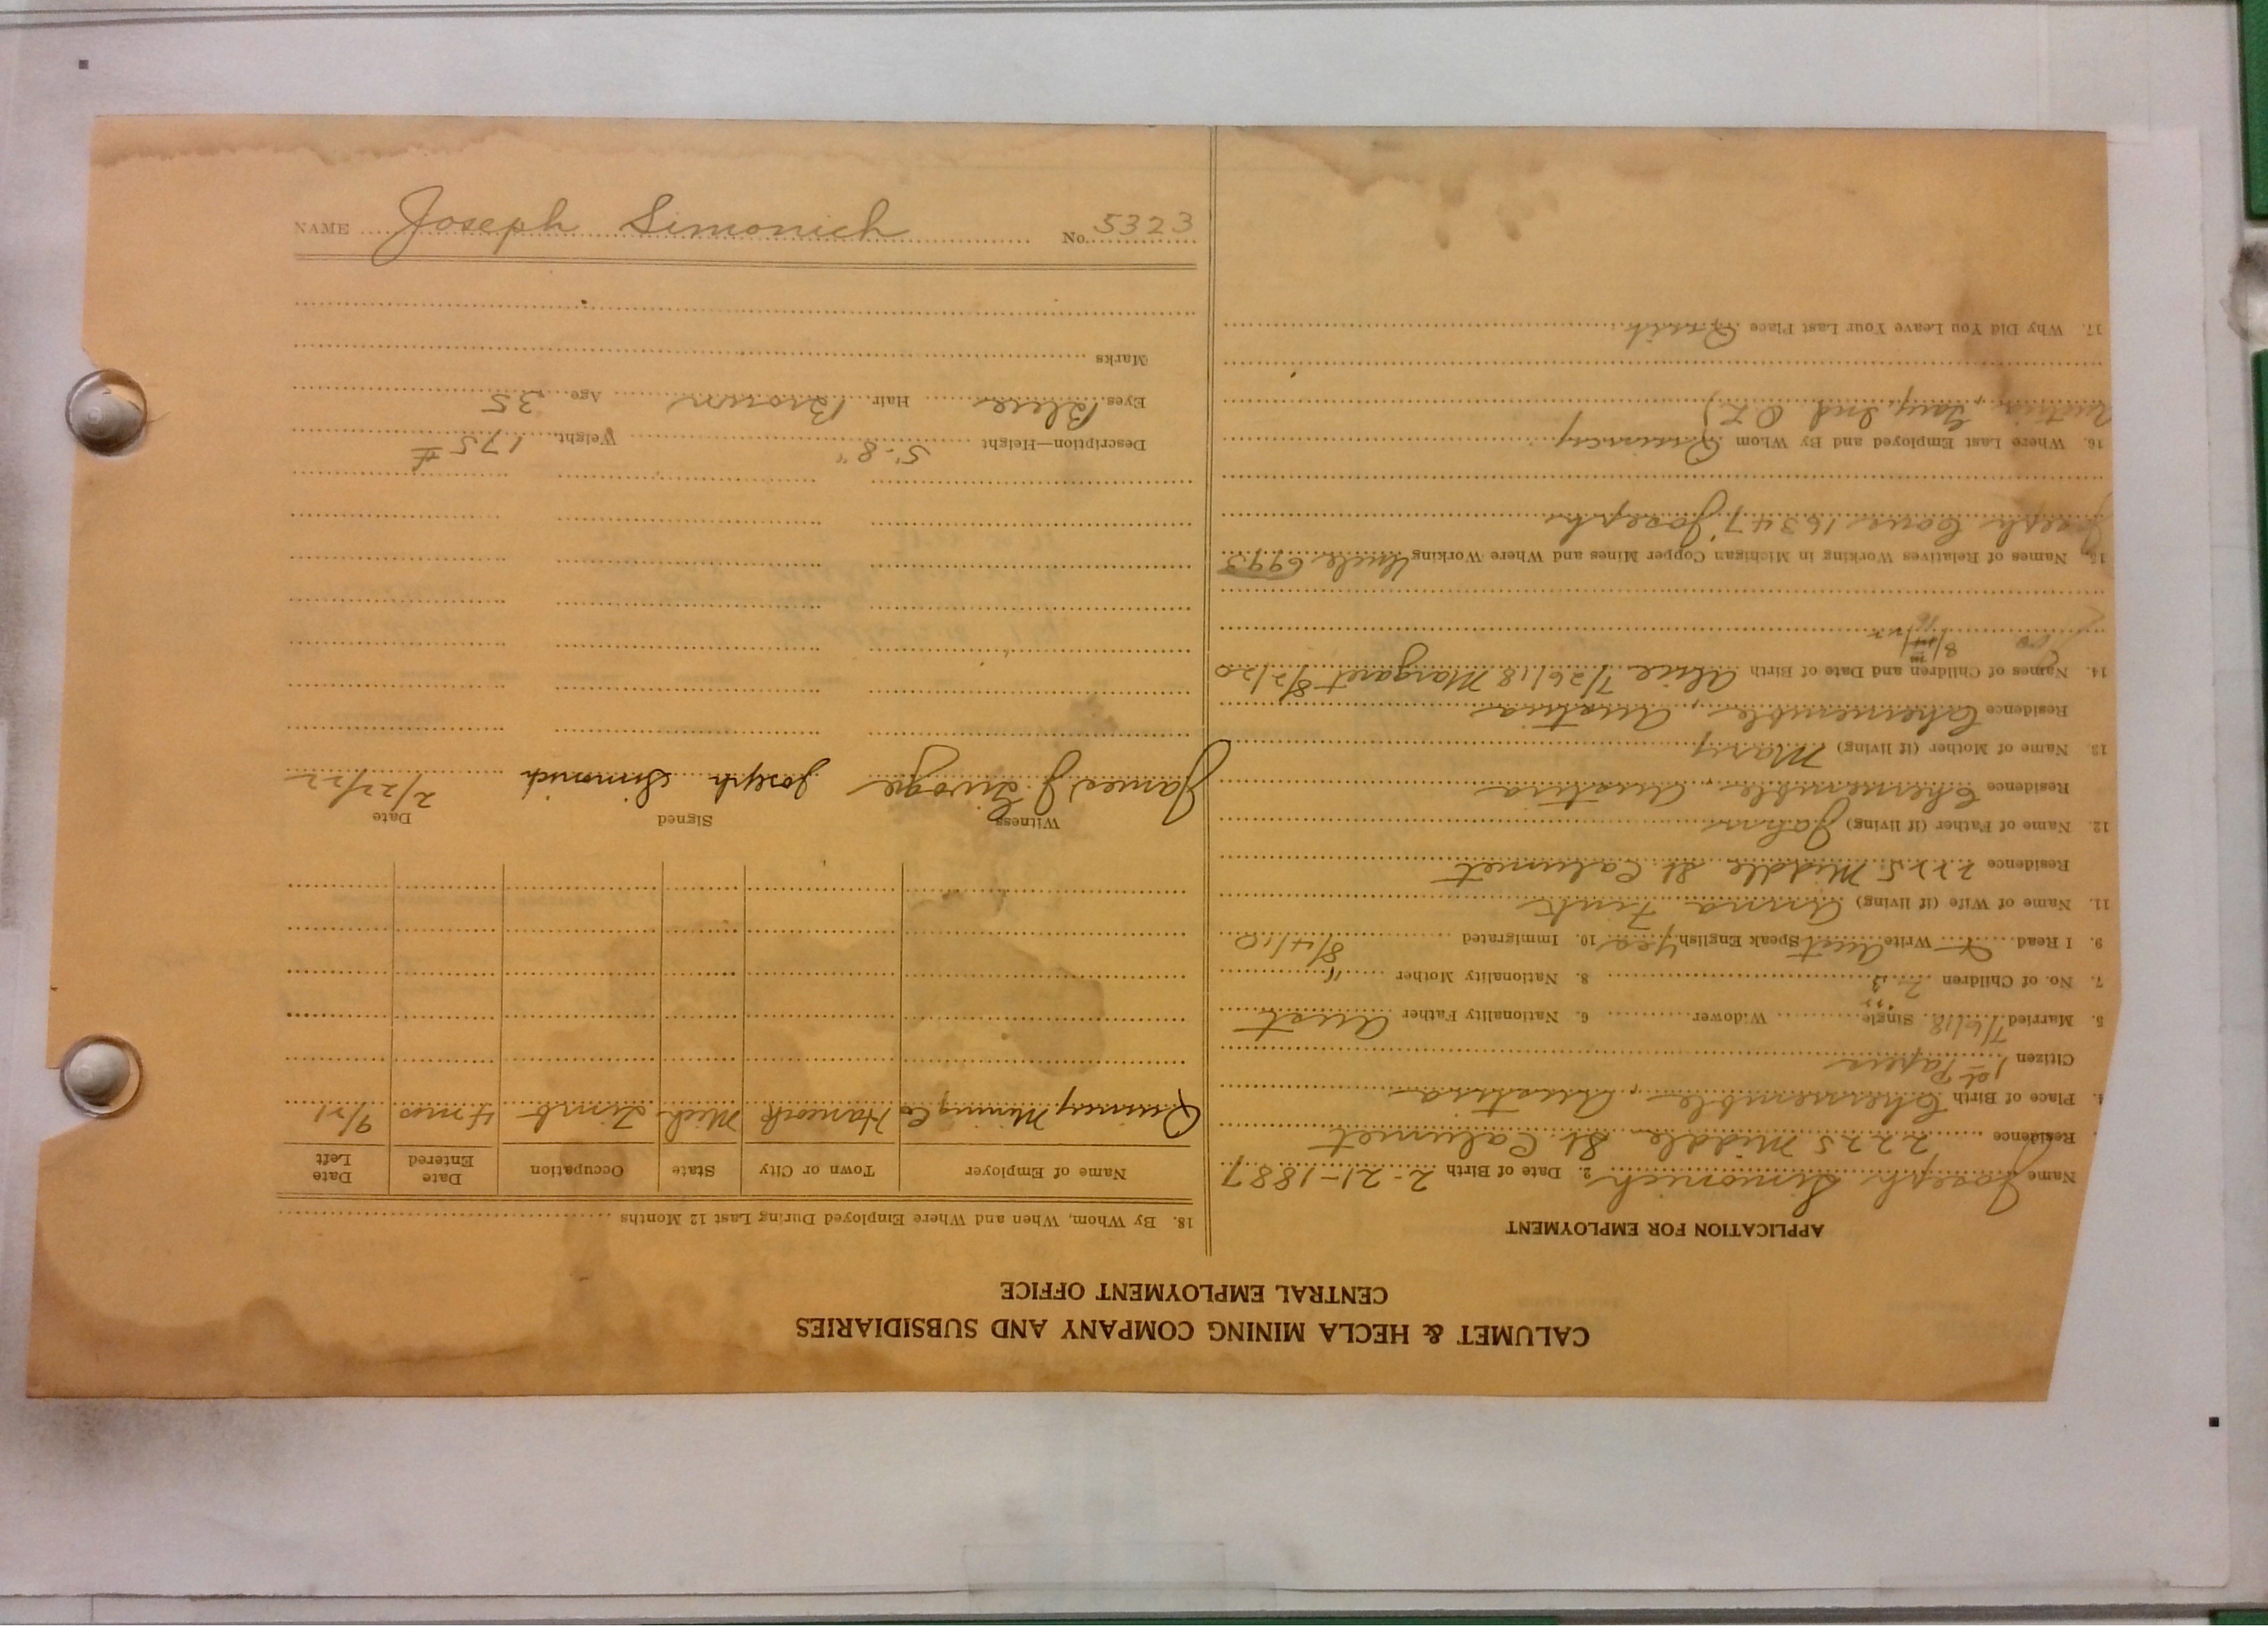 CALUMET & HECLA MINING COMPANY AND SUBSIDIARIES
CENTRAL EMPLOYMENT OFFICE
APPLICATION FOR EMPLOYMENT
Name Joseph Simonich 2. Date of Birth 2-21-1887
Residence 2225 Middle St. Calumet
4. Place of Birth Chernemble, Austria
Citizen 1st Papers
5. Married 7/6/18 Single Widower 6. Nationality Father Aust
7. No. of Children 2 3 8. Nationality Mother "
9. I Read Write Aust Speak English yes 10. Immigrated 8/4/10
11. Name of Wife (if living) Anna
Residence 2225 Middle St. Calumet
12. Name of Father (if living) John
Residence Chernemble, Austria
13. Name of Mother (if living) Mary
Residence Chernemble, Austria
14. Names of Children and Date of Birth Alice 7/26/18 Margaret 8/2/20
15. Names of Relatives Working in Michigan Copper Mines and Where Working Uncle 6993
Joseph 16347, Joseph
16. Where Last Employed and By Whom Quincy
17. Why Did You Leave Your Last Place Quit
18. By Whom, When and Where Employed During Last 12 Months
Name of Employer Town or City State Occupation Date Entered Date Left
Quincy Mining Co Hancock Mich Timb 4 mos 9/21
Witness Signed Date
James J. Joseph Simonich 2/22/22
Description—Height 5'-8" Weight 175 #
Eyes Blue Hair Brown Age 35
Marks
NAME Joseph Simonich No. 5323